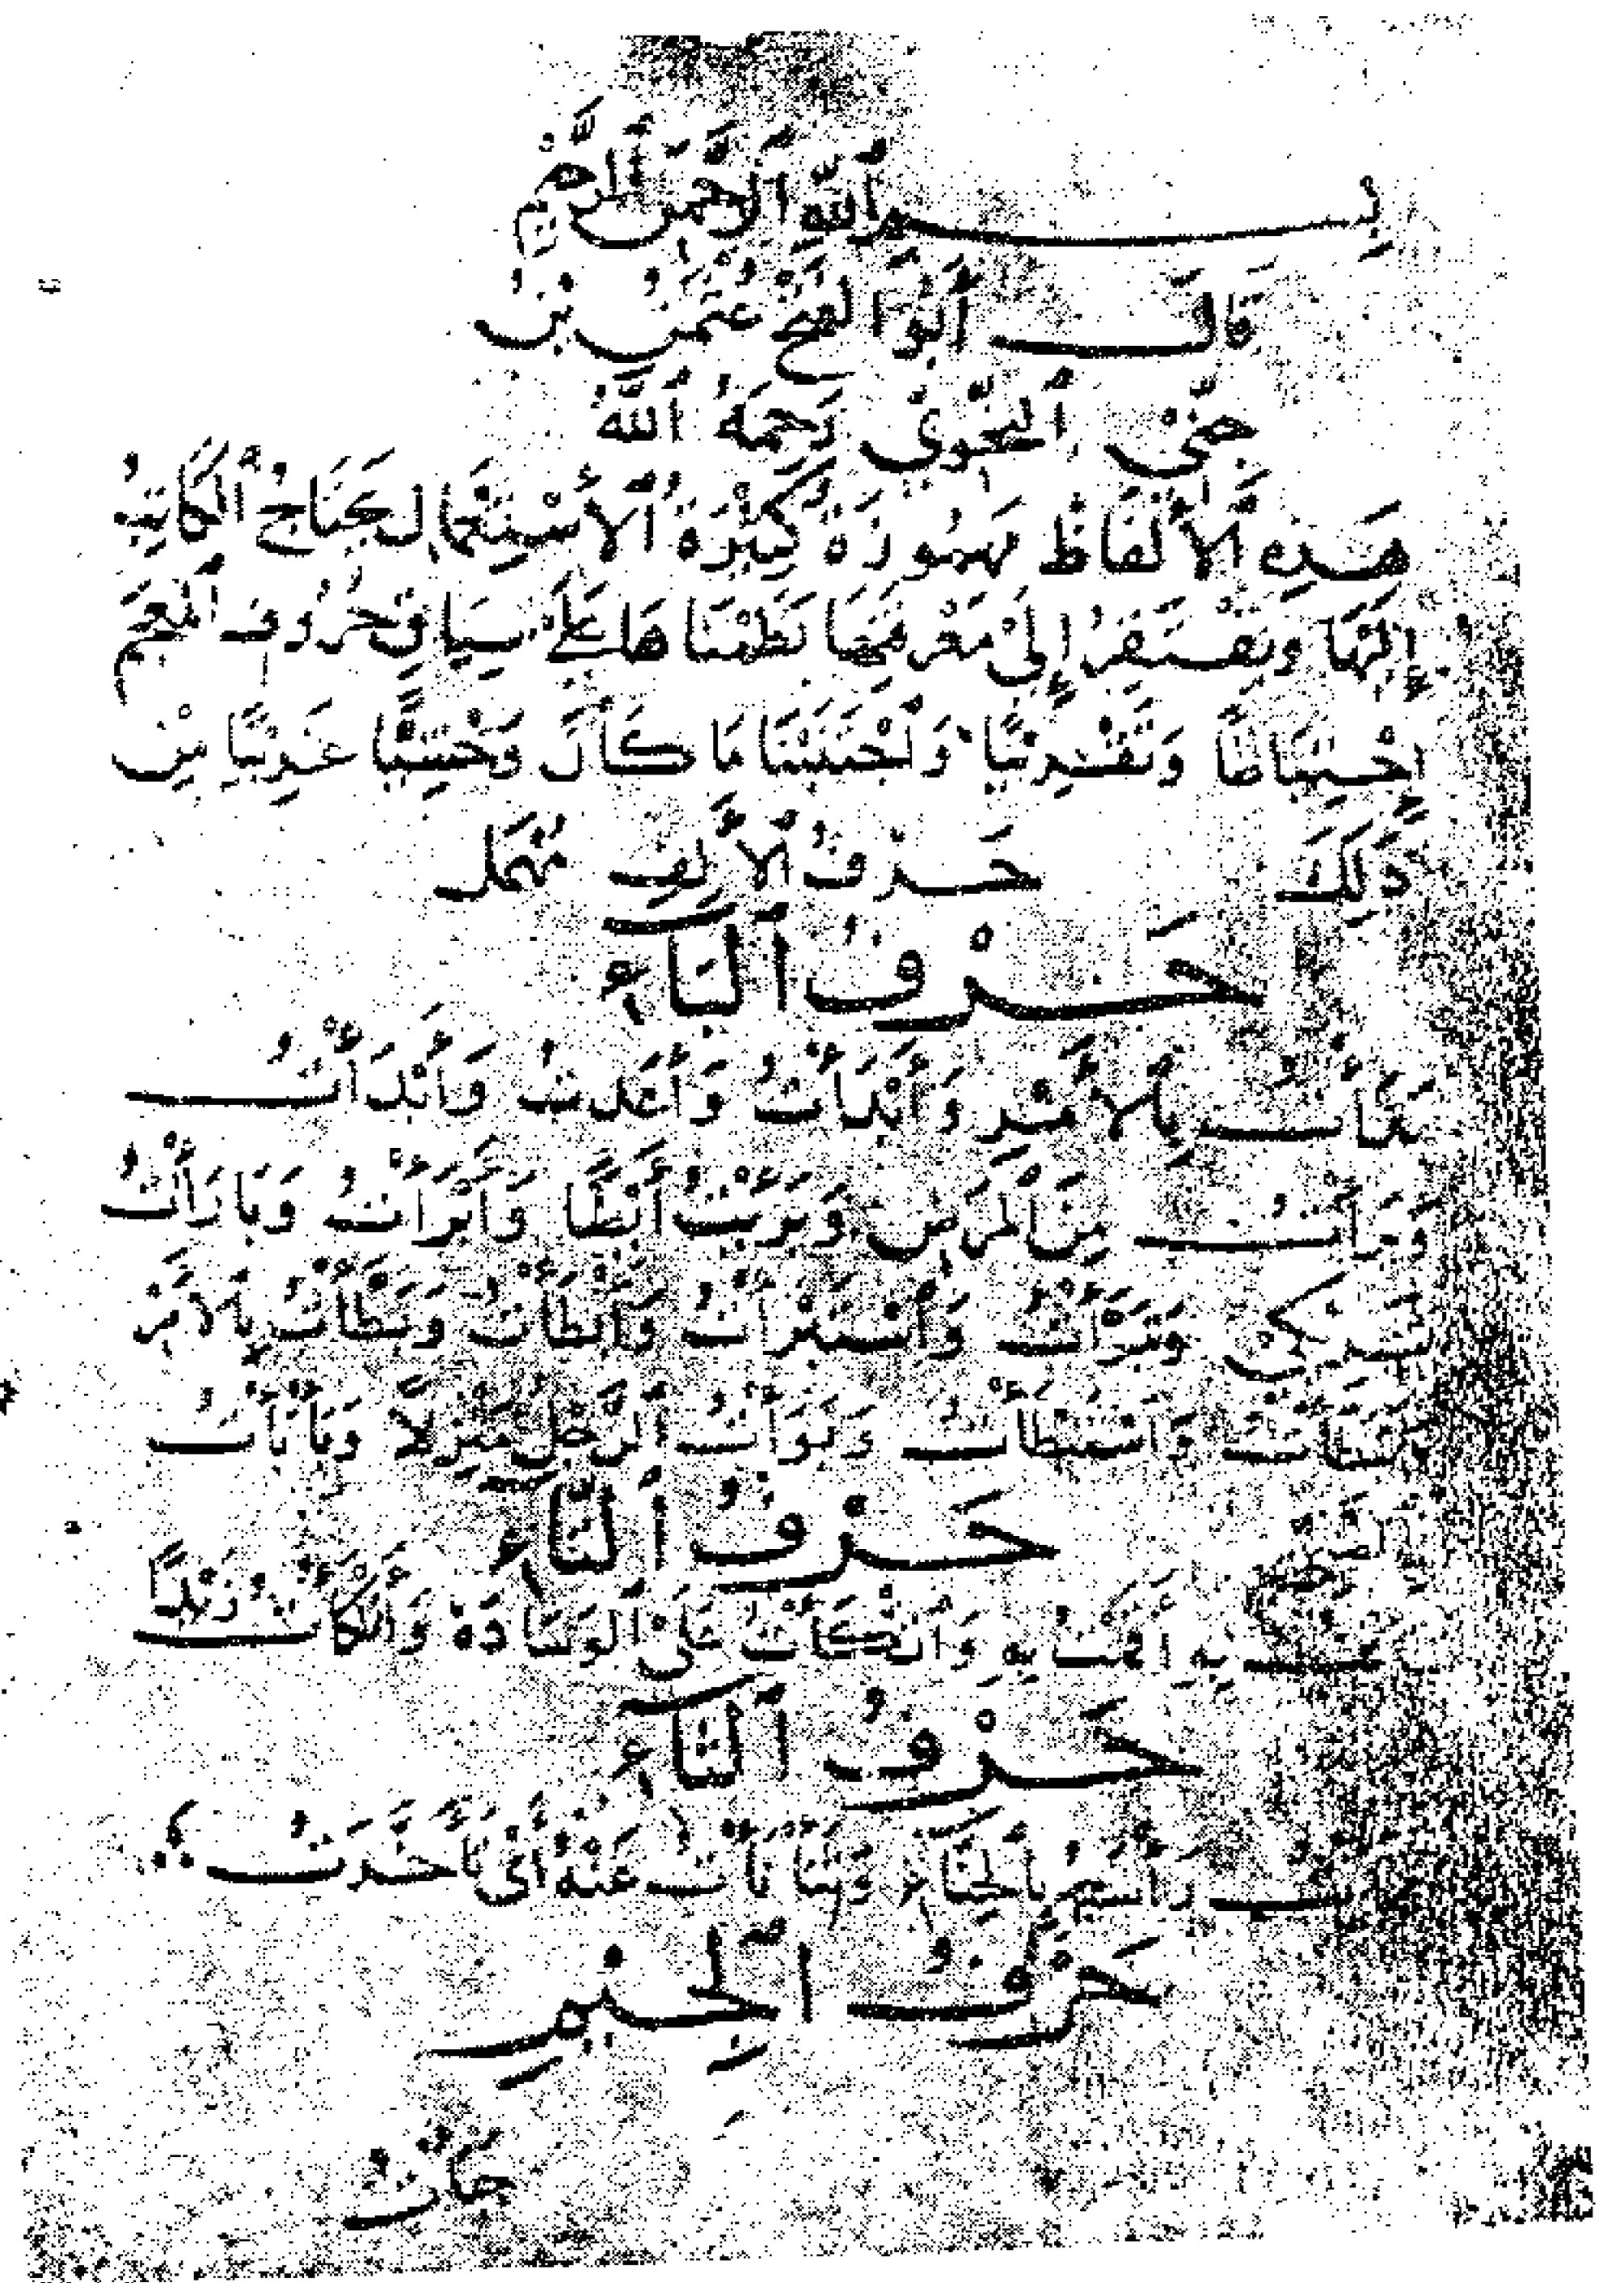 بِسْمِ ٱللَّهِ ٱلرَّحْمَنِ ٱلرَّحِيمِ
قَالَ أَبُو ٱلْفَتْحِ عُثْمَنُ بْنُ
جِنِّيْ ٱلنَّحْوِيُّ رَحِمَهُ ٱللَّهُ
هَذِهِ ٱلْأَلْفَاظُ مَهْمُوزَةٌ كَثِيْرَةُ ٱلْاسْتِعْمَالِ يَحْتَاجُ ٱلْكَاتِبُ
إِلَيْهَا وَيَفْتَقِرُ إِلَىْ مَعْرِفَتِهَا نَظَمْنَاهَا عَلَىْ سِيَاقِ حُرُوفِ ٱلْمُعْجَمِ
إِحْتِيَاطًا وَتَقْرِيْبًا وَٱجْتَنَبْنَا مَا كَانَ وَحْشِيًّا غَرِيْبًا مِنْ
ذَلِكَ حَرْفُ ٱلْأَلِفِ مُهْمَل
حَرْفُ ٱلْبَآءِ
بَدَأْتُ بِٱلْأَمْرِ وَٱبْتَدَأْتُ وَأَعَدْتُ وَأَبْدَأْتُ
وَبَرَأْتُ مِنَ ٱلْمَرَضِ وَبَرِئْتُ أَيْضًا وَأَبْرَأْتُ وَبَارَأْتُ
شَرِيْكِيْ وَتَبَرَّأْتُ وَٱسْتَبْرَأْتُ وَأَبْطَأْتُ وَبَطَّأْتُ بِٱلْأَمْرِ
وَٱسْتَبْطَأْتُ وَبَوَّأْتُ ٱلرَّجُلَ مَنْزِلًا وَبَأْبَأْتُ
حَرْفُ ٱلتَّآءِ
بِهِ أَقَمْتُ بِهِ وَٱتَّكَأْتُ عَلَىْ ٱلْوِسَادَةِ وَأَتْكَأْتُ زَيْدًا
حَرْفُ ٱلثَّآءِ
رَأْسَهُ بِٱلْحِنَّآءِ وَثَأْثَأْتُ عَنْهُ أَيْ تَأَخَّرْتُ
حَرْفُ ٱلْجِيْمِ
جَأْتُ